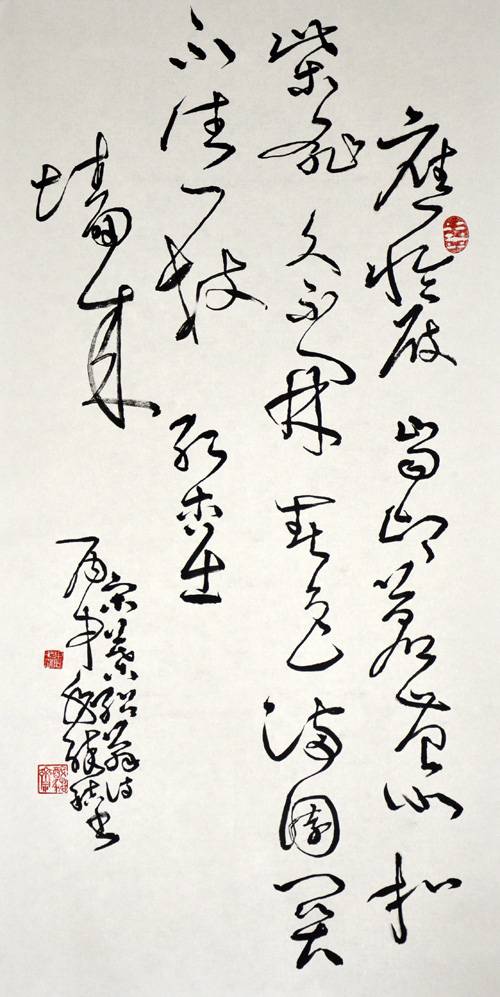 應憐屐齒印蒼苔小扣
柴扉久不開春色滿園關
不住一枝紅杏出
墻來
宋葉紹翁詩
丙申
書